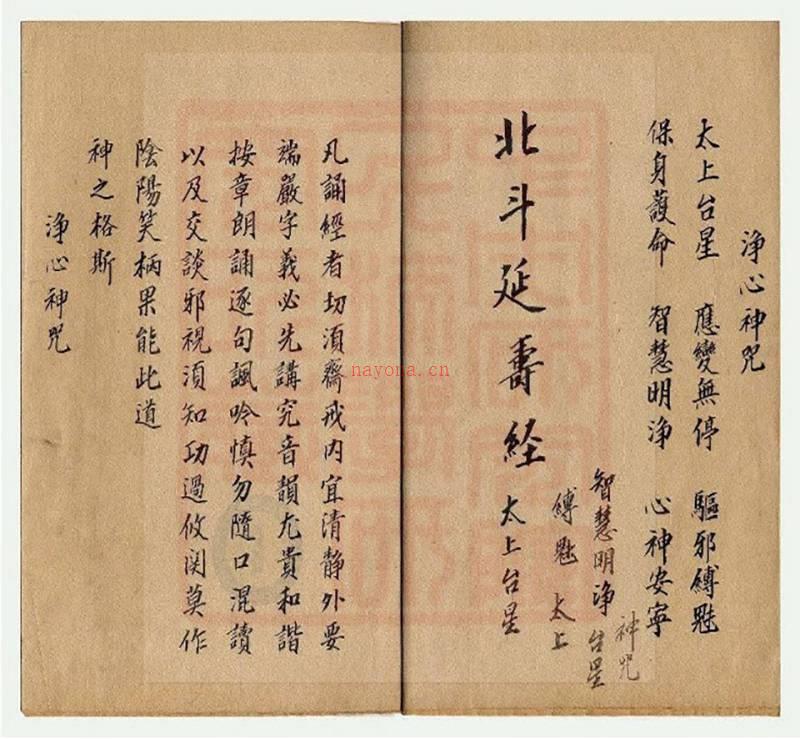 淨心神咒
太上台星　應變無停　驅邪縛魅
保身護命　智慧明淨　心神安寧
神咒
智慧明淨 台星
縛魅 太上
北斗延壽経 太上台星
凡誦經者切須齋戒内宜清静外要
端嚴字義必先講究音韻尤貴和諧
按章朗誦逐句諷吟慎勿隨口混讀
以及交談邪視須知功過攸関莫作
陰陽笑柄果能此道
神之格斯
淨心神咒
nayona.cn